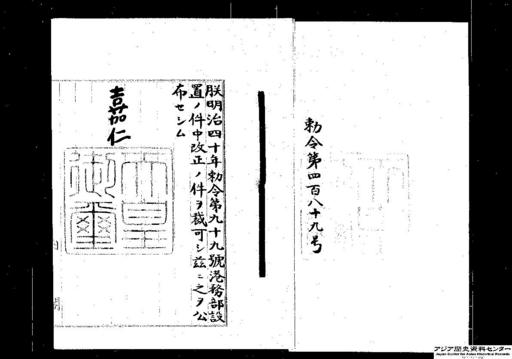 勅令第四百八十九号
朕明治四十年勅令第九十九號港務部設
置ノ件中改正ノ件ヲ裁可シ茲ニ之ヲ公
布セシム
嘉仁
天皇御璽
アジア歴史資料センター
Japan Center for Asian Historical Records